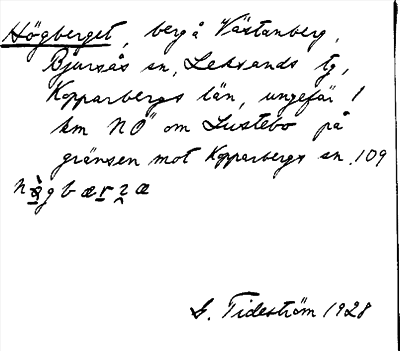 Högberget, berg å Västanberg,
Bjursås sn, Leksands tg,
Kopparbergs län, ungefär 1
km NÖ om Lustebo på
gränsen mot Kopparbergs sn. 109
G. Tideström 1928